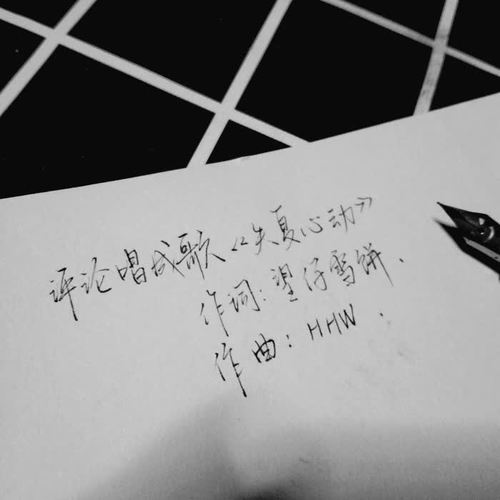 评论唱成歌《失夏心动》
作词：望仔雪饼.
作曲：HHW.